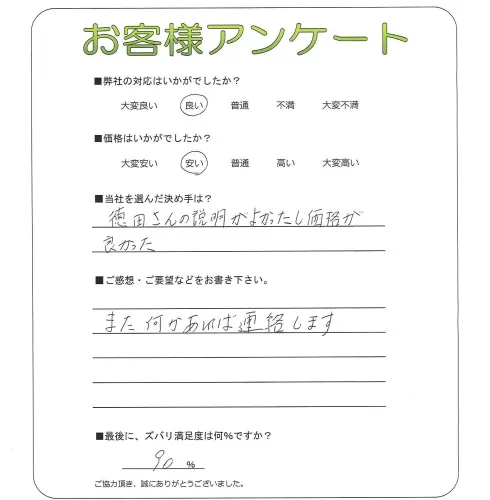 お客様アンケート
■弊社の対応はいかがでしたか？
大変良い 良い 普通 不満 大変不満
■価格はいかがでしたか？
大変安い 安い 普通 高い 大変高い
■当社を選んだ決め手は？
徳田さんの説明がよかったし価格が
良かった
■ご感想・ご要望などをお書き下さい。
また何かあれば連絡します
■最後に、ズバリ満足度は何%ですか？
90 %
ご協力頂き、誠にありがとうございました。